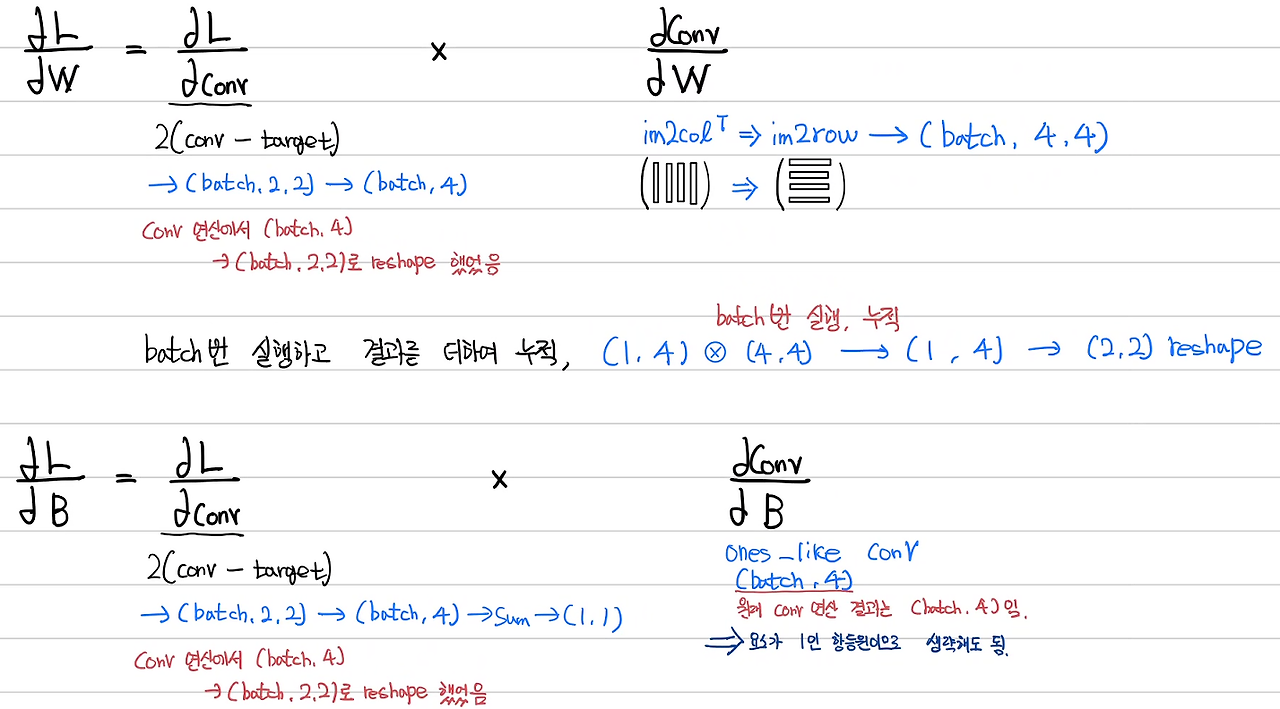 ∂L/∂W = ∂L/∂Conv × ∂Conv/∂W
2(conv − target)
→ (batch, 2, 2) → (batch, 4)
Conv 연산에서 (batch, 4)
→ (batch, 2, 2)로 reshape 했었음
im2colᵀ ⇒ im2row → (batch, 4, 4)
⇒
batch번 실행, 누적
batch번 실행하고 결과를 더하여 누적, (1, 4) ⊗ (4, 4) → (1, 4) → (2, 2) reshape
∂L/∂B = ∂L/∂Conv × ∂Conv/∂B
2(conv − target)
→ (batch, 2, 2) → (batch, 4) → Sum → (1, 1)
Conv 연산에서 (batch, 4)
→ (batch, 2, 2)로 reshape 했었음
ones_like conv
(batch, 4)
원래 conv 연산 결과는 (batch, 4)임.
⇒ 요소가 1인 항등원이므로 생략해도 됨.